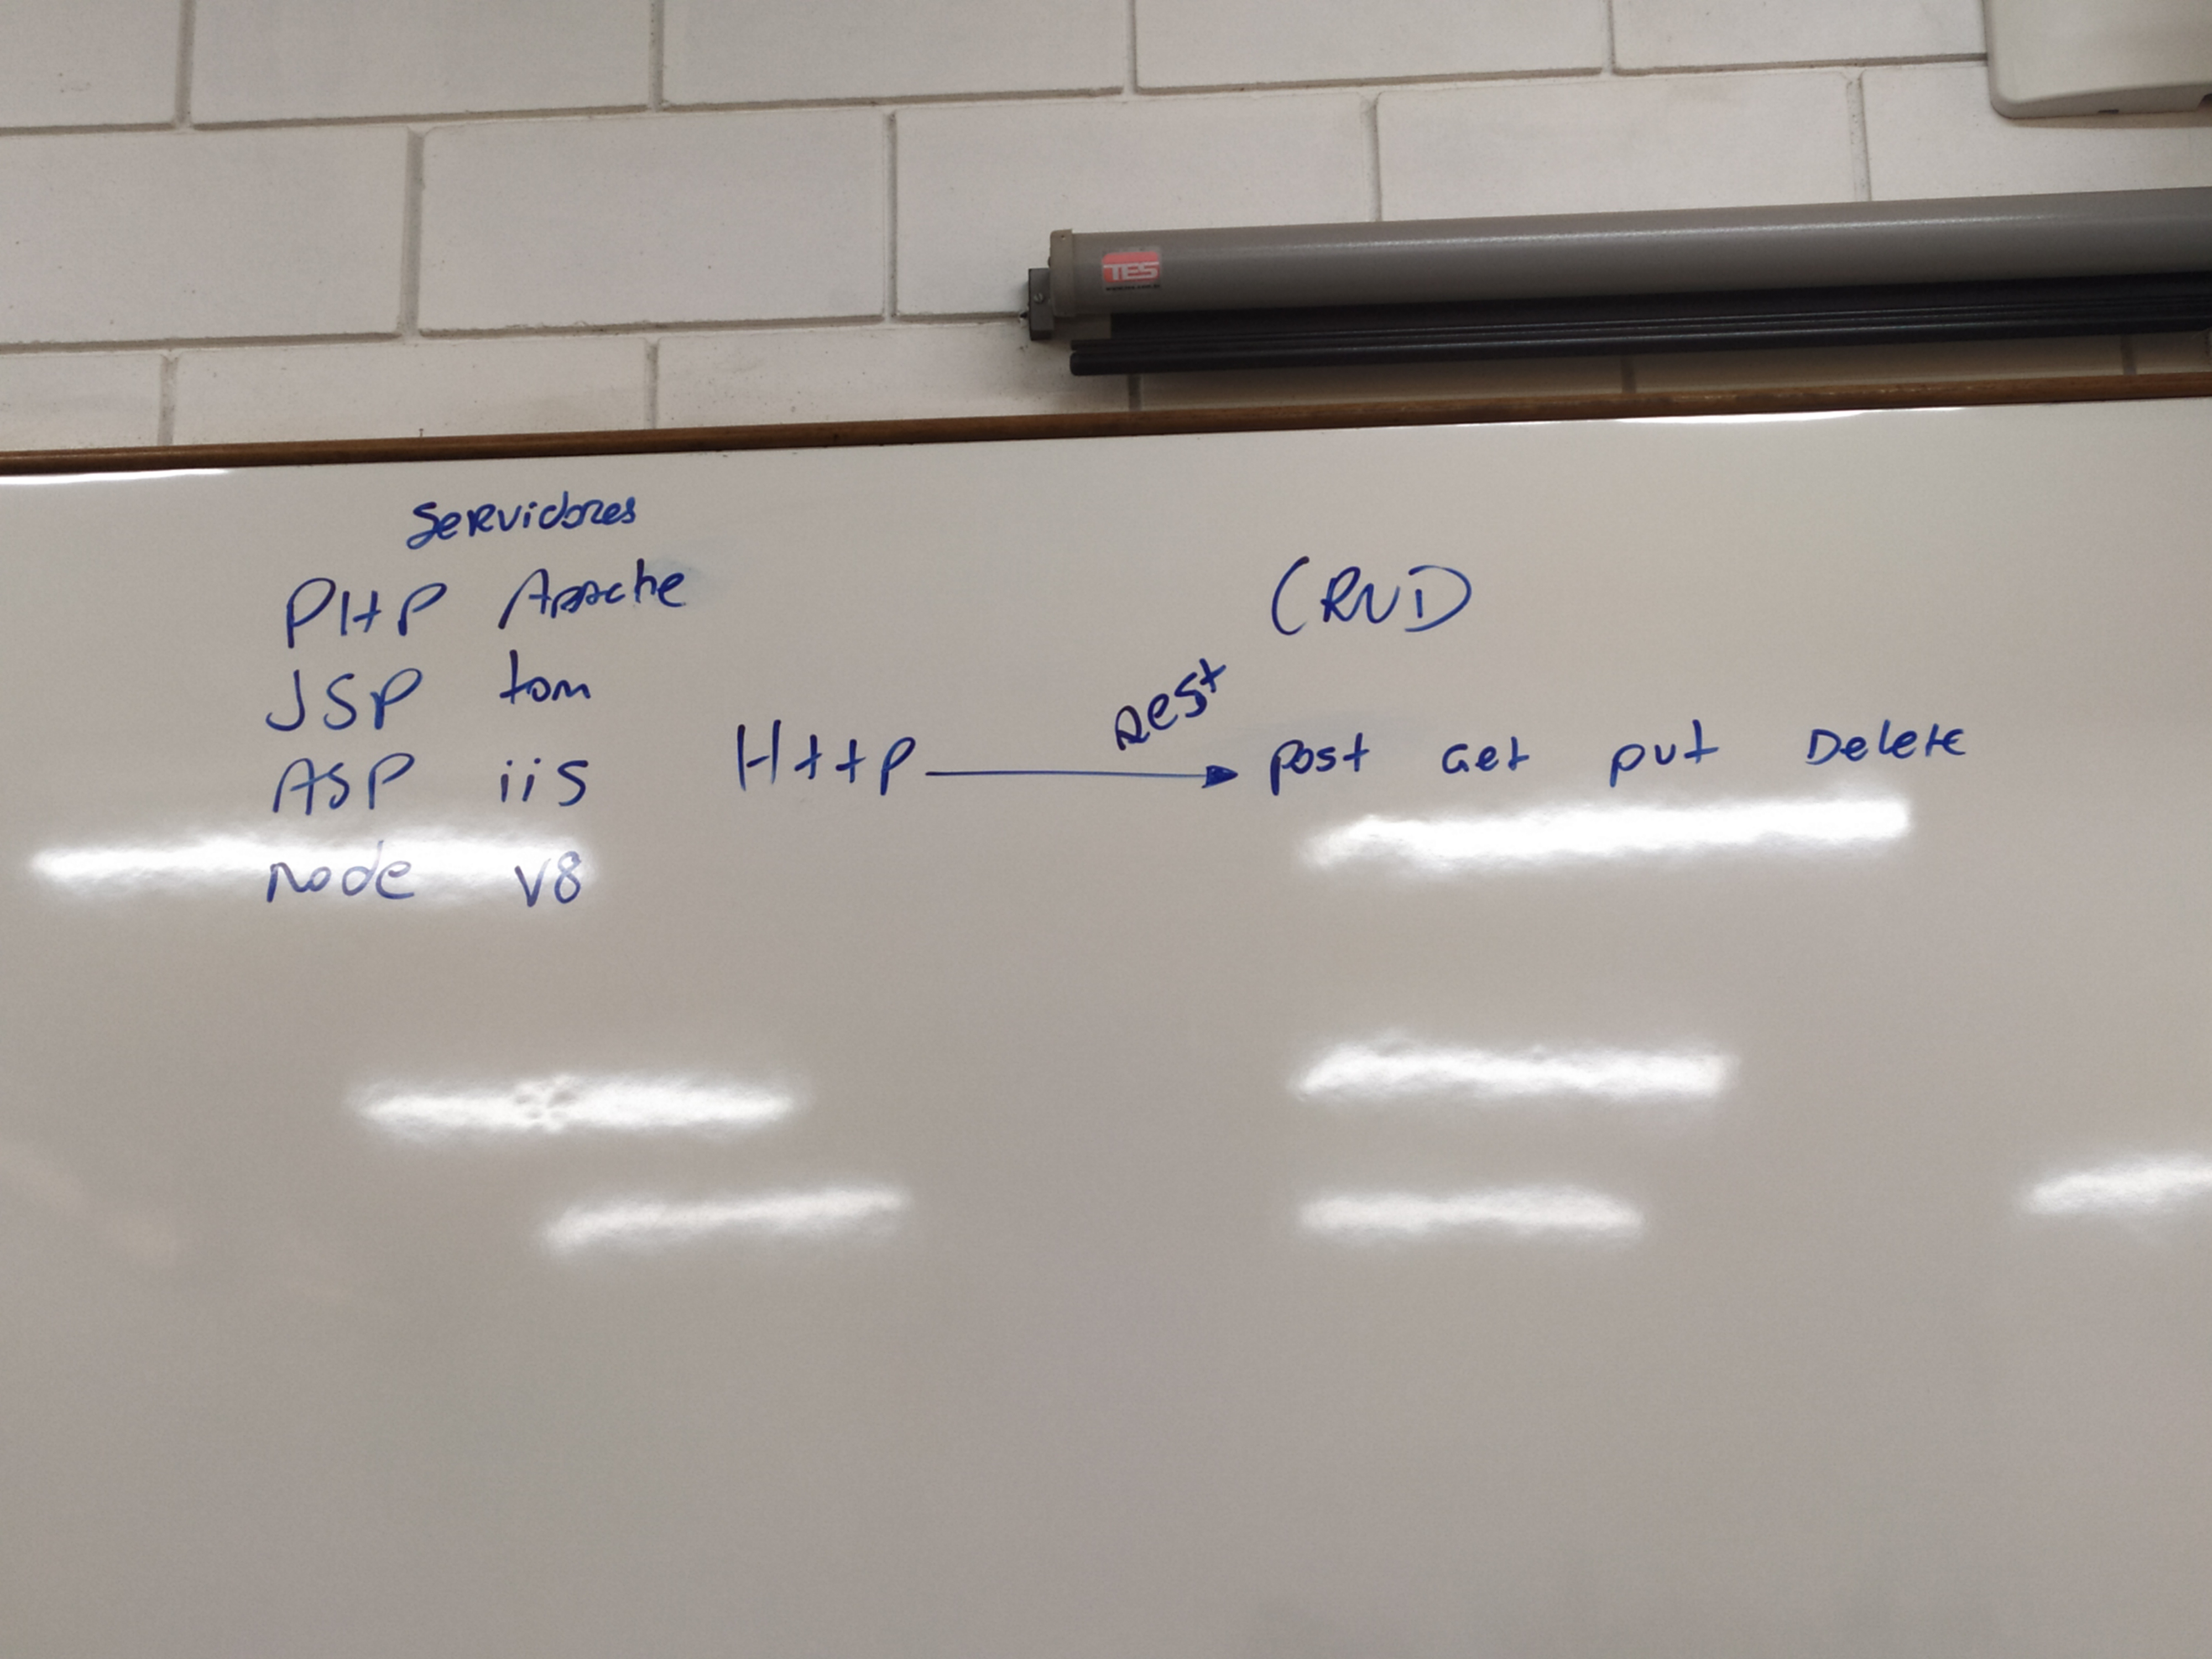 TES
Servidores
PHP Apache
JSP tom
ASP iis
node v8
Http
Rest
CRUD
post Get put Delete